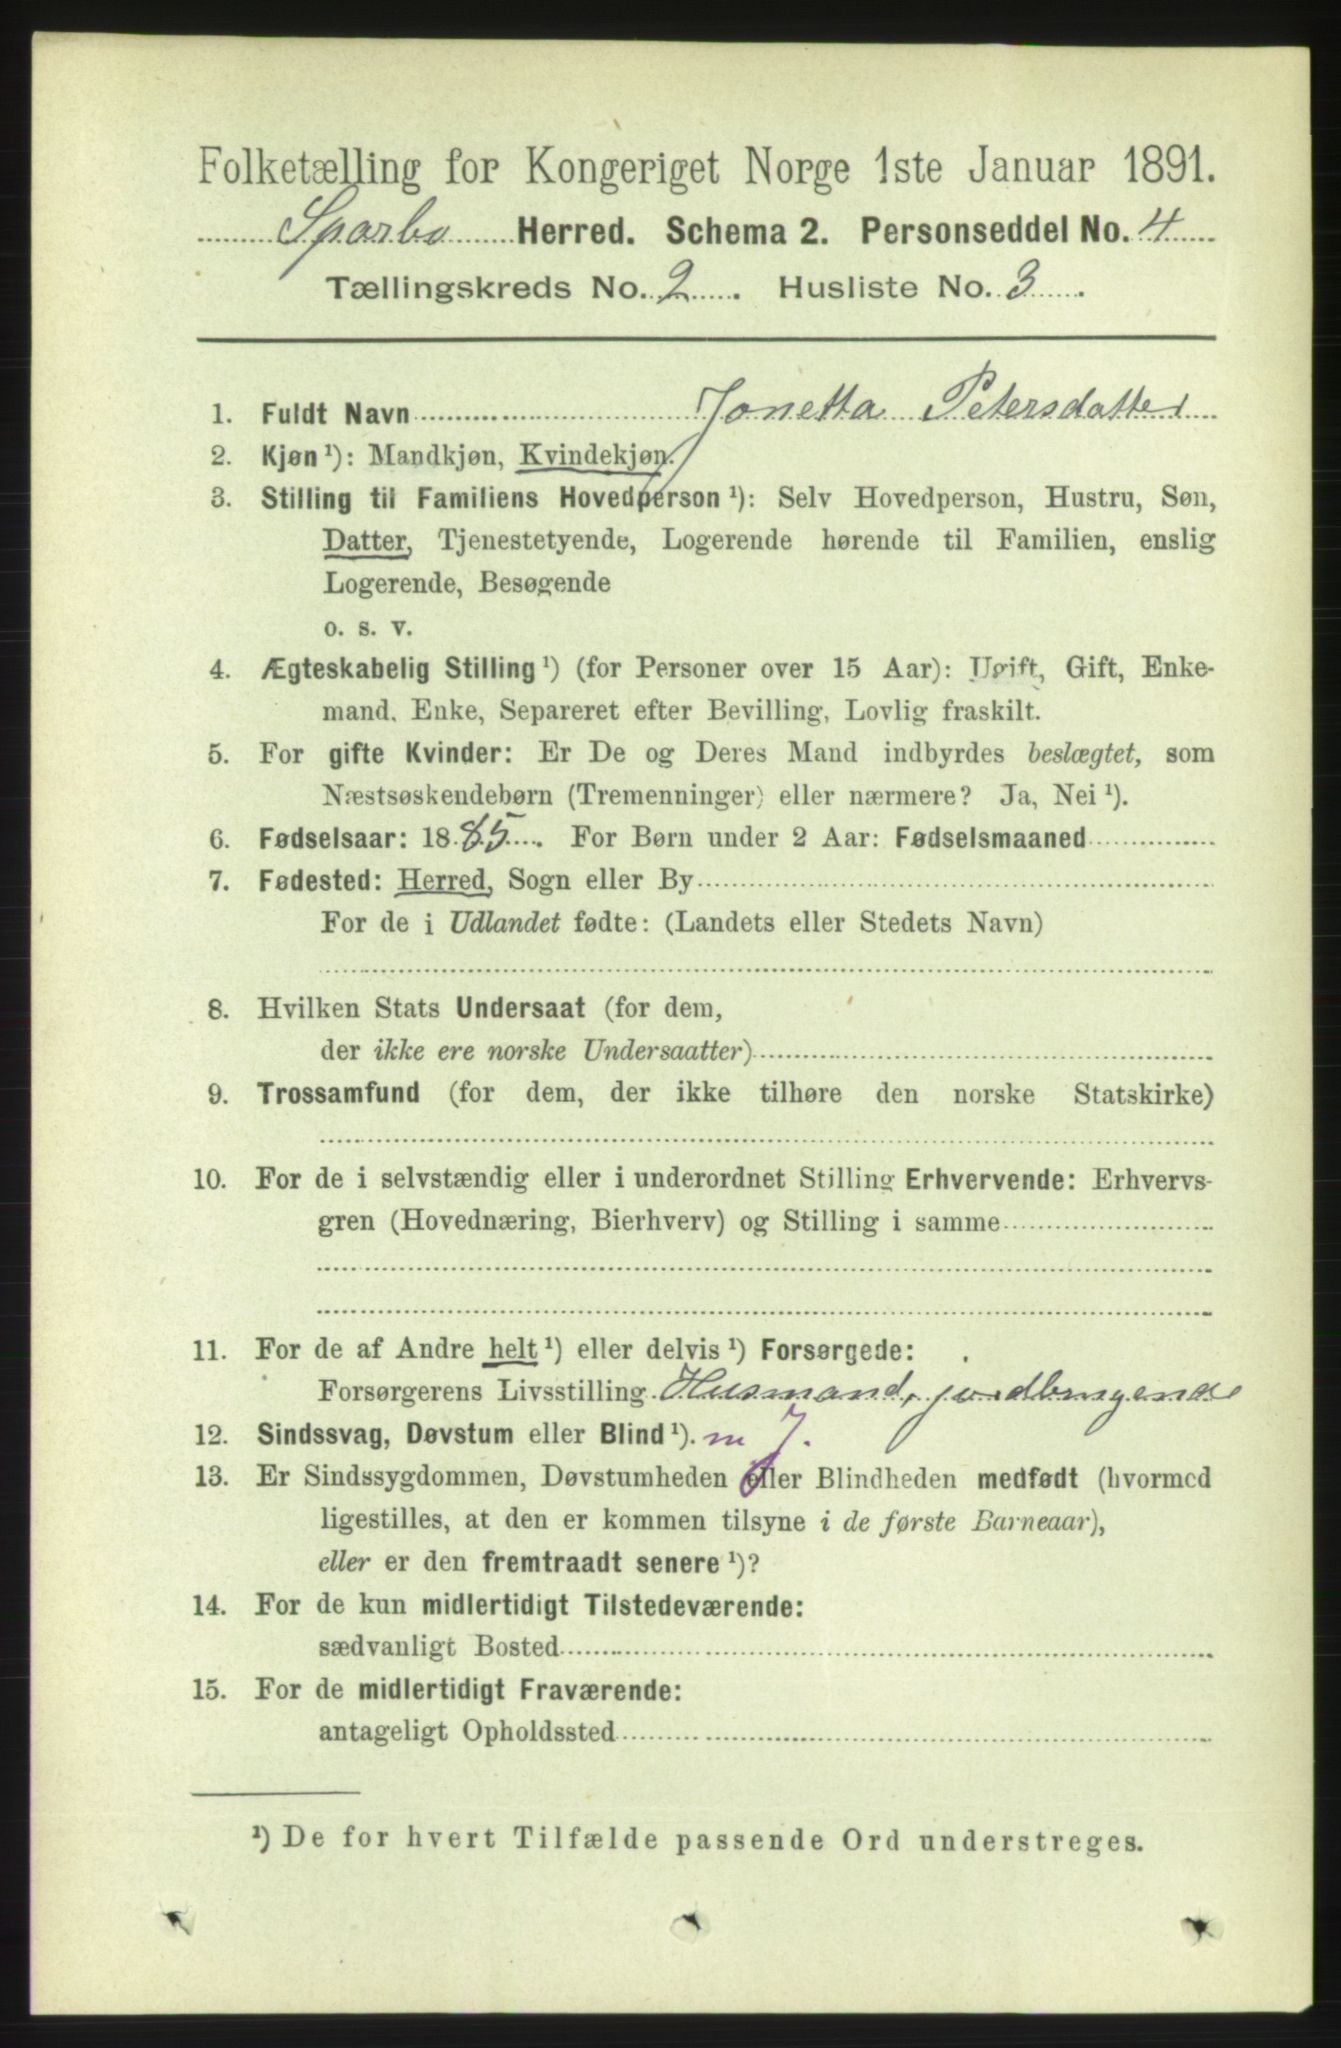 Folketælling for Kongeriget Norge 1ste Januar 1891.
Sparbo Herred. Schema 2. Personseddel No. 4
Tællingskreds No. 2. Husliste No. 3.
1. Fuldt Navn Jonetta Petersdatter
2. Kjøn ¹): Mandkjøn, Kvindekjøn.
3. Stilling til Familiens Hovedperson ¹): Selv Hovedperson, Hustru, Søn,
Datter, Tjenestetyende, Logerende hørende til Familien, enslig
Logerende, Besøgende
o. s. v.
4. Ægteskabelig Stilling ¹) (for Personer over 15 Aar): Ugift, Gift, Enke-
mand, Enke, Separeret efter Bevilling, Lovlig fraskilt.
5. For gifte Kvinder: Er De og Deres Mand indbyrdes beslægtet, som
Næstsøskendebørn (Tremenninger) eller nærmere? Ja, Nei ¹).
6. Fødselsaar: 1885. For Børn under 2 Aar: Fødselsmaaned
7. Fødested: Herred, Sogn eller By
For de i Udlandet fødte: (Landets eller Stedets Navn)
8. Hvilken Stats Undersaat (for dem,
der ikke ere norske Undersaatter)
9. Trossamfund (for dem, der ikke tilhøre den norske Statskirke)
10. For de i selvstændig eller i underordnet Stilling Erhvervende: Erhvervs-
gren (Hovednæring, Bierhverv) og Stilling i samme
11. For de af Andre helt ¹) eller delvis ¹) Forsørgede:
Forsørgerens Livsstilling Husmand, jordbrugende
12. Sindssvag, Døvstum eller Blind ¹). m J.
13. Er Sindssygdommen, Døvstumheden eller Blindheden medfødt (hvormed
ligestilles, at den er kommen tilsyne i de første Barneaar),
eller er den fremtraadt senere ¹)?
14. For de kun midlertidigt Tilstedeværende:
sædvanligt Bosted
15. For de midlertidigt Fraværende:
antageligt Opholdssted
¹) De for hvert Tilfælde passende Ord understreges.